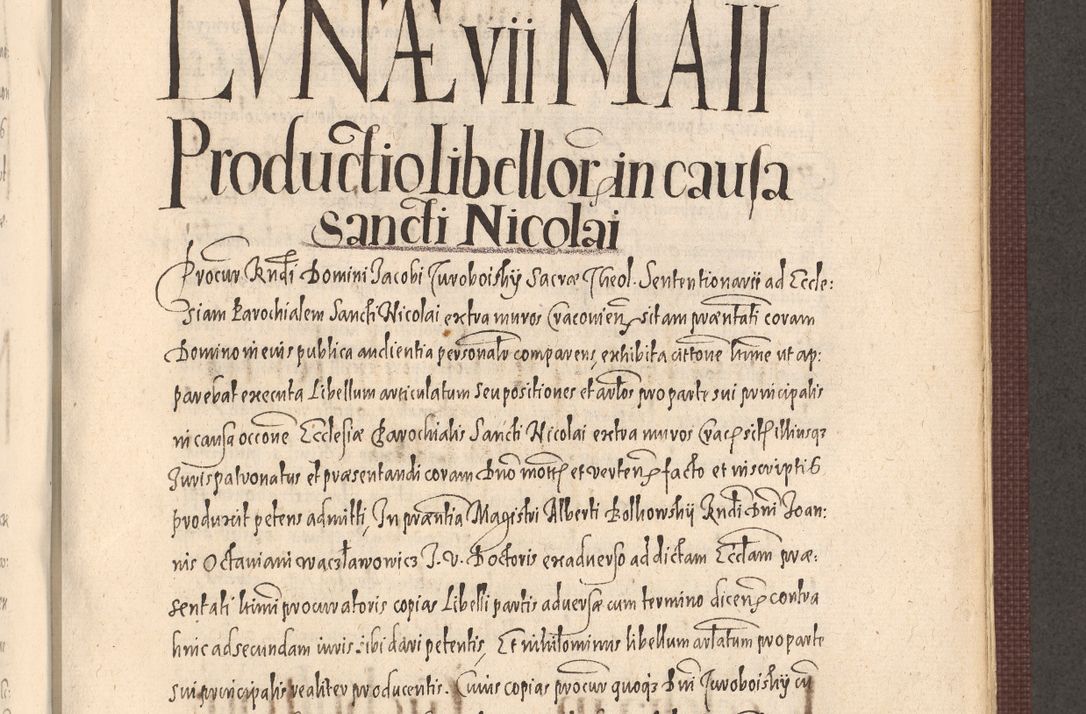 LVNÆ vii MAII
Productio libellor in causa
sancti Nicolai
Procur Rndi Domini Jacobi Turoboisky Sacræ Theol. Sententionarii ad Eccle:
siam Parochialem Sancti Nicolai extra muros Cracovien sitam præntati coram
Domino in eius publica audientia personalr comparens, exhibita citatone hmne ut ap:
parebat executa Libellum articulatum seu positiones et artlos pro parte sui principalis
in causa occone Ecclesiæ Parochialis Sancti Nicolai extra muros Crac sit illiusq3
Jurispatronatus et præsentandi coram Dno mott et verten facto et in scriptis
produxit petens admitti, In præntia Magistri Alberti Bolkowskij Rndi Dni Joan:
nis Octaviani waczlawowicz J. v. Doctoris ex adverso ad dictam Ecclam præ:
sentati hmni procuratoris copias Libelli partis adversæ cum termino dicen contra
hinc ad secundam iuris sibi dari petentis, Et nihilominus libellum artlatum pro parte
sui principalis realiter producentis. Cuius copias procur quoq3 Dni Turoboiskij cu